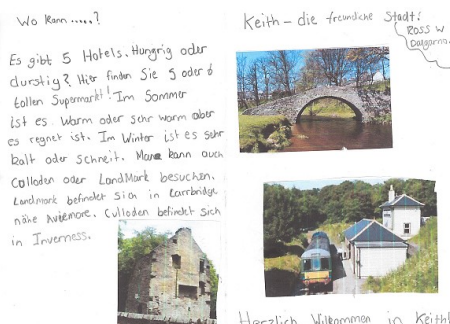 Wo kann.....?
Es gibt 5 Hotels. Hungrig oder
durstig? Hier finden Sie 5 oder 6
tollen Supermarkt! Im Sommer
ist es warm oder sehr warm aber
es regnet ist. Im Winter ist es sehr
kalt oder schneit. Man kann auch
Culloden oder LandMark besuchen.
Landmark befindet sich in Carrbridge
nähe Aviemore. Culloden befindet sich
in Inverness.
Keith - die freundliche Stadt!
Ross W
Dalgarno
Herzlich Willkommen in Keith!